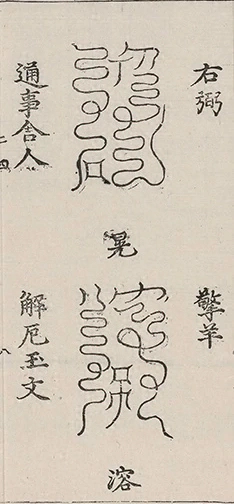 右弼
晃
通事舍人
擎羊
溶
解厄玉文